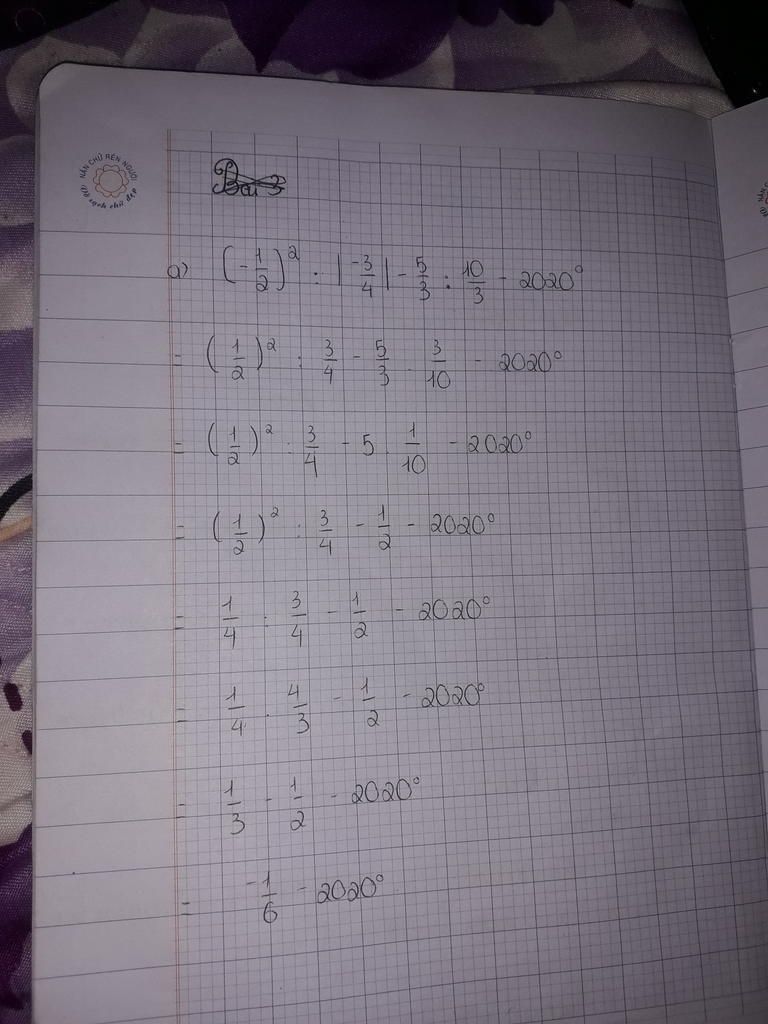 NẮN CHỮ RÈN NGƯỜI
Bài 3
a) (-1/2)² : |-3/4| - 5/3 : 10/3 - 2020⁰
= (1/2)² : 3/4 - 5/3 . 3/10 - 2020⁰
= (1/2)² : 3/4 - 5 . 1/10 - 2020⁰
= (1/2)² : 3/4 - 1/2 - 2020⁰
= 1/4 : 3/4 - 1/2 - 2020⁰
= 1/4 . 4/3 - 1/2 - 2020⁰
= 1/3 - 1/2 - 2020⁰
= -1/6 - 2020⁰